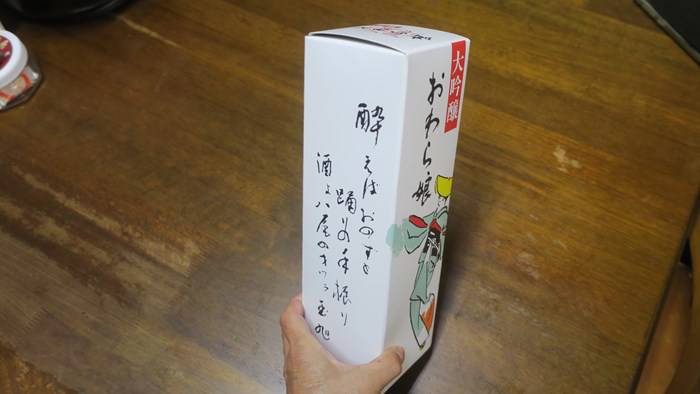 大吟醸
おわら娘
酔えばおのずと
踊りの手振り
酒は八尾の
玉旭